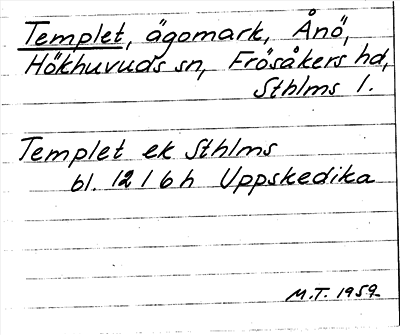 Templet, ägomark, Ånö,
Hökhuvuds sn, Frösåkers hd,
Sthlms l.
Templet ek Sthlms
bl. 12 I 6 h Uppskedika
M.T. 1959